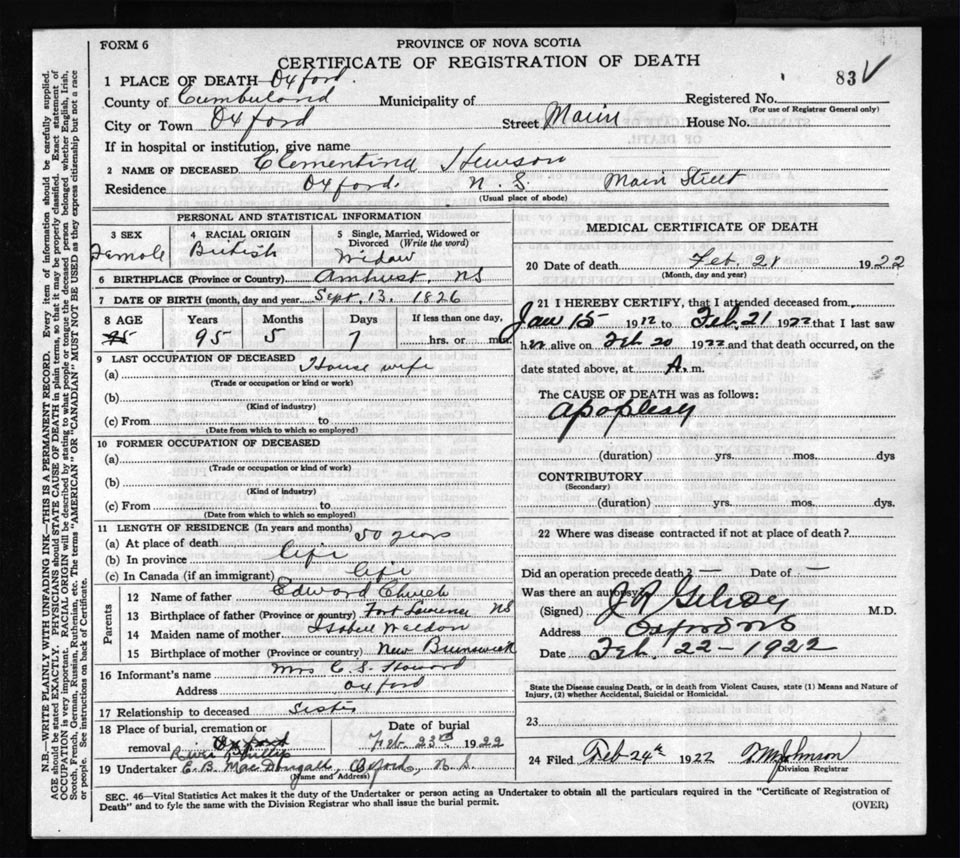 FORM 6
PROVINCE OF NOVA SCOTIA
CERTIFICATE OF REGISTRATION OF DEATH
83
1 PLACE OF DEATH Oxford.
County of Cumberland Municipality of Registered No.
(For use of Registrar General only)
City or Town Oxford Street Main House No.
If in hospital or institution, give name
2 NAME OF DECEASED Clementina Hewson
Residence Oxford. N.S. Main Street
(Usual place of abode)
PERSONAL AND STATISTICAL INFORMATION
3 SEX Female
4 RACIAL ORIGIN British
5 Single, Married, Widowed or Divorced (Write the word) Widow
6 BIRTHPLACE (Province or Country) Amherst, NS
7 DATE OF BIRTH (month, day and year) Sept. 13. 1826
8 AGE Years Months Days If less than one day,
95 5 7 hrs. or min.
9 LAST OCCUPATION OF DECEASED
(a) House wife
(Trade or occupation or kind or work)
(b)
(Kind of industry)
(c) From to
(Date from which to which so employed)
10 FORMER OCCUPATION OF DECEASED
(a)
(Trade or occupation or kind of work)
(b)
(Kind of industry)
(c) From to
(Date from which to which so employed)
11 LENGTH OF RESIDENCE (In years and months)
(a) At place of death 50 years
(b) In province life
(c) In Canada (if an immigrant) life
Parents
12 Name of father Edward Church
13 Birthplace of father (Province or country) Fort Lawrence NS
14 Maiden name of mother Isobell Weldon
15 Birthplace of mother (Province or country) New Brunswick
16 Informant's name Mrs C. S. Howard
Address Oxford
17 Relationship to deceased Sister
18 Place of burial, cremation or removal Oxford
River Phillip
Date of burial
Feb. 23rd 1922
19 Undertaker E. B. MacDougall, Oxford, N.S.
(Name and Address)
MEDICAL CERTIFICATE OF DEATH
20 Date of death Feb. 21 1922
(Month, day and year)
21 I HEREBY CERTIFY, that I attended deceased from
Jan 15 1922 to Feb. 21 1922 that I last saw
her alive on Feb 20 1922 and that death occurred, on the
date stated above, at A. m.
The CAUSE OF DEATH was as follows:
apoplexy
(duration) yrs. mos. dys
CONTRIBUTORY
(Secondary)
(duration) yrs. mos. dys.
22 Where was disease contracted if not at place of death?
Did an operation precede death? — Date of —
Was there an autopsy?
(Signed) M.D.
Address Oxford NS
Date Feb. 22 - 1922
State the Disease causing Death, or in death from Violent Causes, state (1) Means and Nature of Injury, (2) whether Accidental, Suicidal or Homicidal.
23
24 Filed Feb 24th 1922
Division Registrar
SEC. 46—Vital Statistics Act makes it the duty of the Undertaker or person acting as Undertaker to obtain all the particulars required in the "Certificate of Registration of
Death" and to fyle the same with the Division Registrar who shall issue the burial permit. (OVER)
N.B.—WRITE PLAINLY WITH UNFADING INK—THIS IS A PERMANENT RECORD. Every item of information should be carefully supplied.
AGE should be stated EXACTLY. PHYSICIANS should STATE CAUSE OF DEATH in plain terms, so that it may be properly classified. Exact statement of
OCCUPATION is very important. RACIAL ORIGIN will be described by stating to what people or tongue the deceased person belonged whether English, Irish,
Scotch, French, German, Russian, Ruthenian, etc. The terms "AMERICAN" or "CANADIAN" MUST NOT BE USED as they express citizenship but not a race
or people. See instructions on back of Certificate.